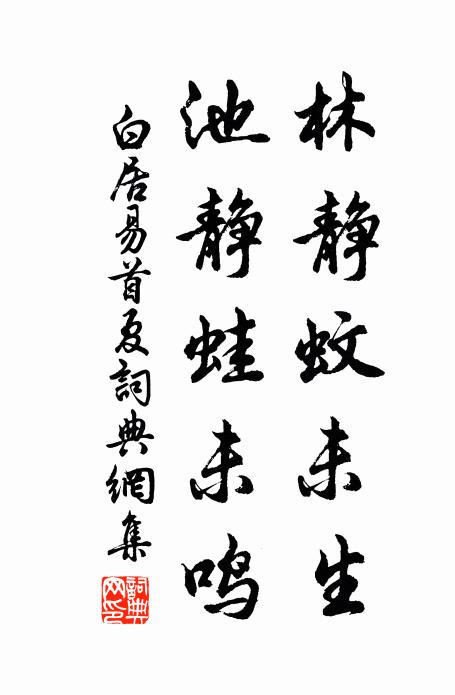 林静蚊未生
池静蛙未鸣
白居易首夏詞典網集
詞典网印